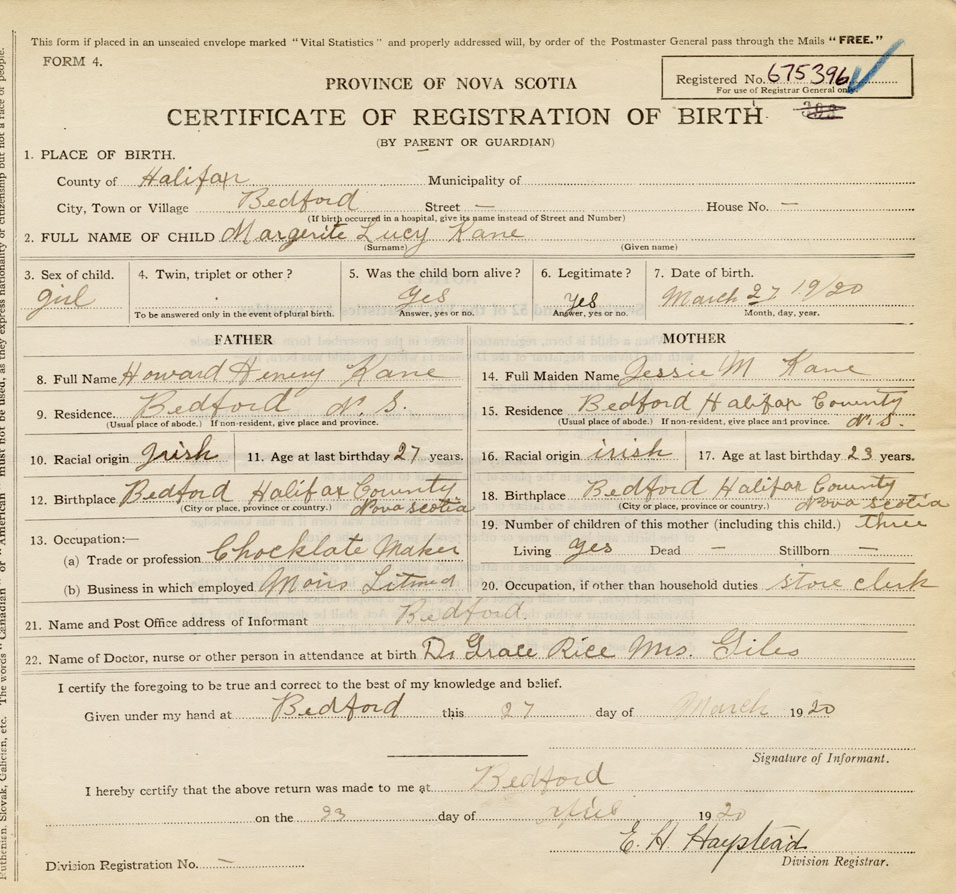 This form if placed in an unsealed envelope marked "Vital Statistics" and properly addressed will, by order of the Postmaster General pass through the Mails "FREE."
FORM 4.
Registered No. 675396
For use of Registrar General only
PROVINCE OF NOVA SCOTIA
CERTIFICATE OF REGISTRATION OF BIRTH
(BY PARENT OR GUARDIAN)
1. PLACE OF BIRTH.
County of Halifax Municipality of
City, Town or Village Bedford Street — House No. —
(If birth occurred in a hospital, give its name instead of Street and Number)
2. FULL NAME OF CHILD Margerite Lucy Kane
(Surname) (Given name)
3. Sex of child. 4. Twin, triplet or other? 5. Was the child born alive? 6. Legitimate? 7. Date of birth.
girl Yes Yes March 27 19/20
To be answered only in the event of plural birth. Answer, yes or no. Answer, yes or no. Month, day, year.
FATHER
8. Full Name Howard Henry Kane
9. Residence. Bedford N. S.
(Usual place of abode.) If non-resident, give place and province.
10. Racial origin Irish 11. Age at last birthday 27 years.
12. Birthplace Bedford Halifax County
(City or place, province or country.) Nova scotia
13. Occupation:—
(a) Trade or profession Chocklate Maker
(b) Business in which employed Moirs Litmed
MOTHER
14. Full Maiden Name Jessie M Kane
15. Residence Bedford Halifax County
(Usual place of abode.) If non-resident, give place and province. N. S.
16. Racial origin irish 17. Age at last birthday 23 years.
18. Birthplace Bedford Halifax County
(City or place, province or country.) Nova scotia
19. Number of children of this mother (including this child.) three
Living yes Dead — Stillborn —
20. Occupation, if other than household duties store clerk
21. Name and Post Office address of Informant Bedford.
22. Name of Doctor, nurse or other person in attendance at birth Dr Grace Rice Mrs. Giles
I certify the foregoing to be true and correct to the best of my knowledge and belief.
Given under my hand at Bedford this 27 day of March 1920
Signature of Informant.
I hereby certify that the above return was made to me at Bedford
on the 23 day of April 1920
E. H. Haystead
Division Registrar.
Division Registration No. —